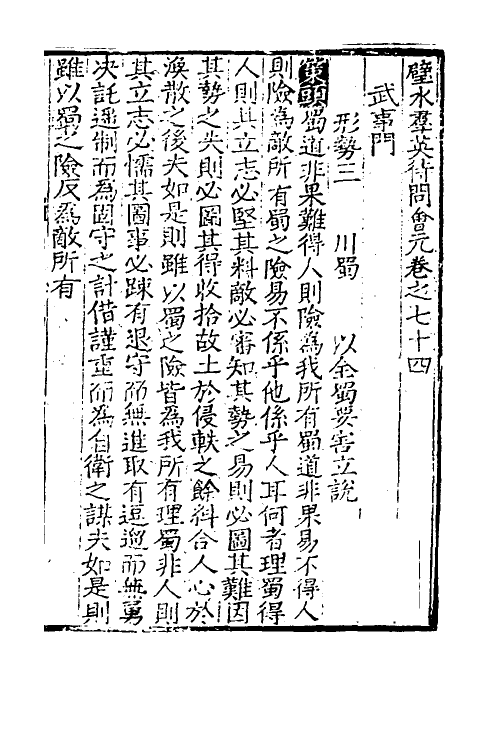 璧水羣英待問會元卷之七十四
武事門
形勢三 川蜀 以全蜀要害立說
策頭蜀道非果難得人則險為我所有蜀道非果易不得人
則險為敵所有蜀之險易不係乎他係乎人耳何者理蜀得
人則其立志必堅其料敵必審知其勢之易則必圖其難因
其勢之失則必圖其得收拾故土於侵軼之餘糾合人心於
渙散之後夫如是則雖以蜀之險皆為我所有理蜀非人則
其立志必懦其圖事必踈有退守而無進取有逗遛而無勇
决託遥制而為固守之計借謹重而為自衛之謀夫如是則
雖以蜀之險反為敵所有